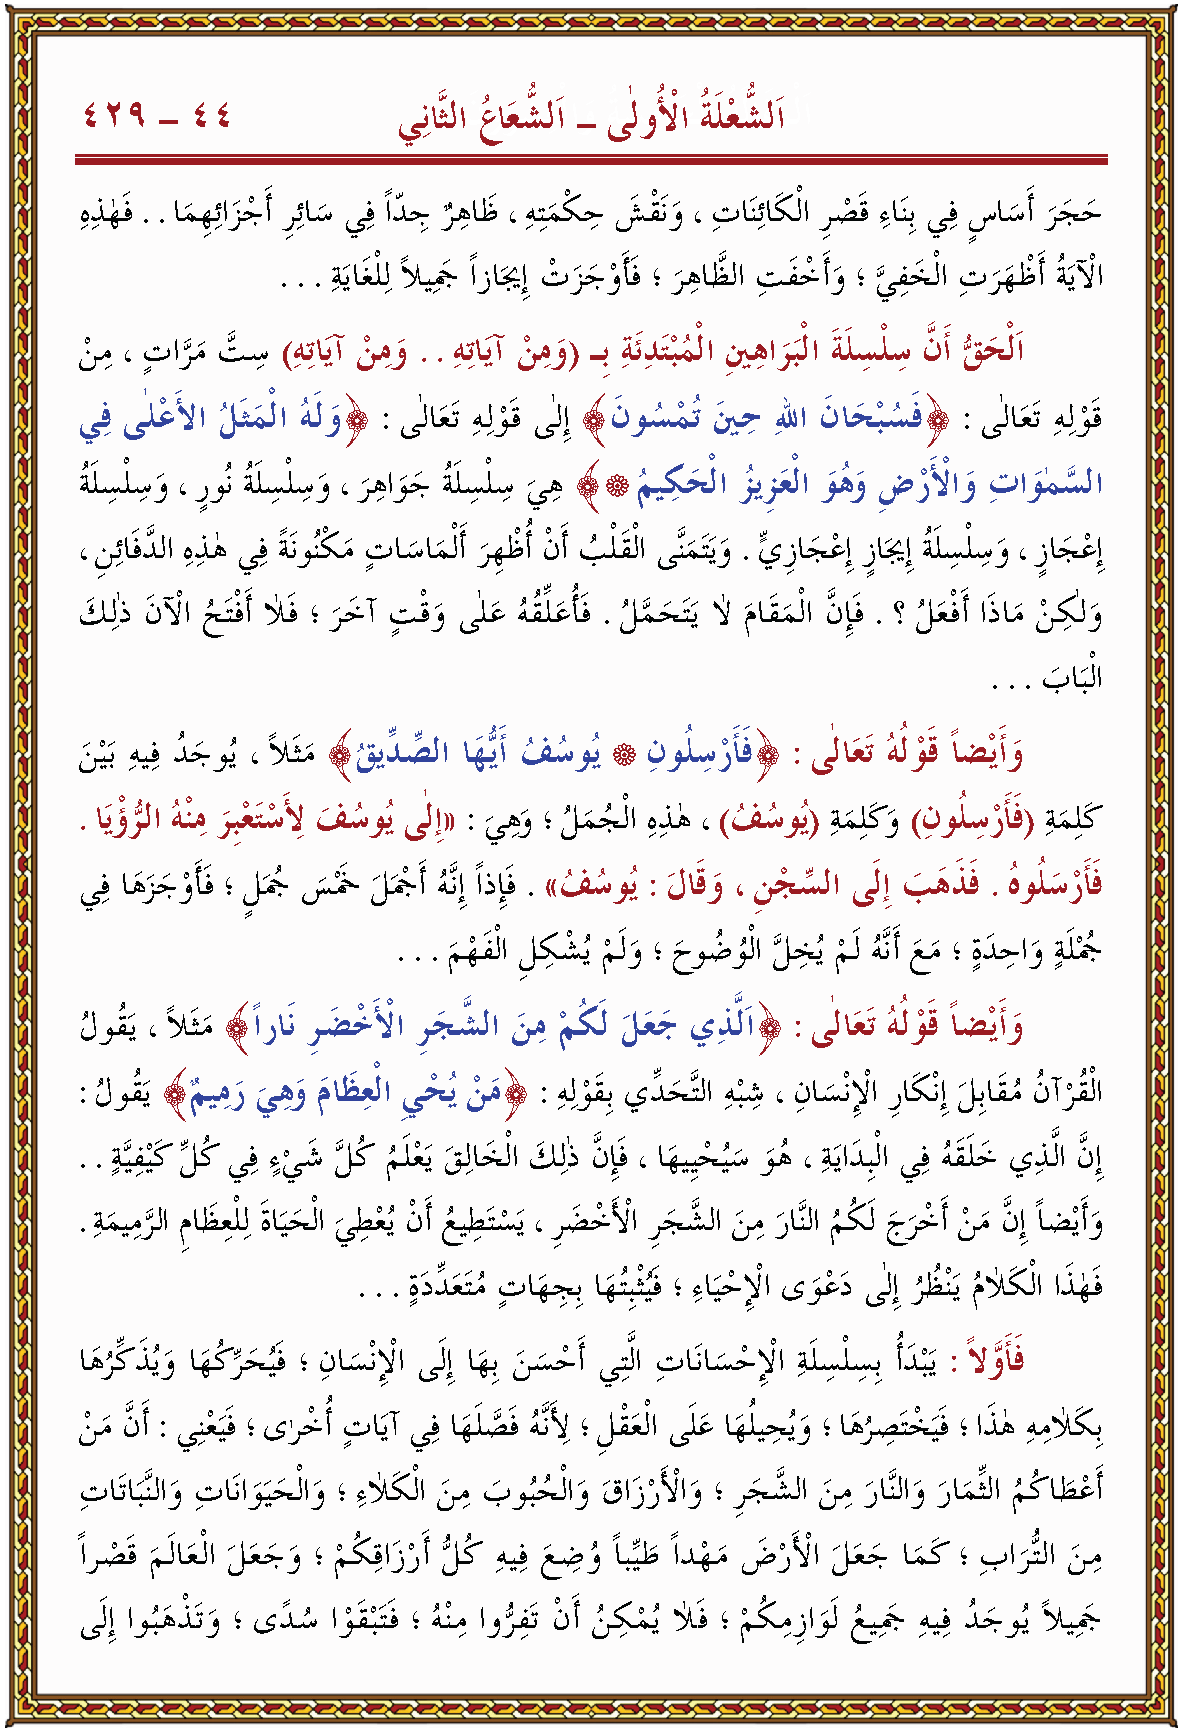 اَلشُّعْلَةُ الْأُولٰى – اَلشُّعَاعُ الثَّانِي ٤٤ – ٤٢٩
حَجَرَ أَسَاسٍ فِي بِنَاءِ قَصْرِ الْكَائِنَاتِ ، وَنَقْشَ حِكْمَتِهِ ، ظَاهِرٌ جِدّاً فِي سَائِرِ أَجْزَائِهِمَا . . فَهٰذِهِ
الْآيَةُ أَظْهَرَتِ الْخَفِيَّ ؛ وَأَخْفَتِ الظَّاهِرَ ؛ فَأَوْجَزَتْ إِيجَازاً جَمِيلاً لِلْغَايَةِ . . .
اَلْحَقُّ أَنَّ سِلْسِلَةَ الْبَرَاهِينِ الْمُبْتَدَئَةِ بِـ (وَمِنْ آيَاتِهِ . . وَمِنْ آيَاتِهِ) سِتَّ مَرَّاتٍ ، مِنْ
قَوْلِهِ تَعَالٰى : ﴿فَسُبْحَانَ اللهِ حِينَ تُمْسُونَ﴾ إِلٰى قَوْلِهِ تَعَالٰى : ﴿وَلَهُ الْمَثَلُ الْأَعْلٰى فِي
السَّمٰوَاتِ وَالْأَرْضِ وَهُوَ الْعَزِيزُ الْحَكِيمُ ۞﴾ هِيَ سِلْسِلَةُ جَوَاهِرَ ، وَسِلْسِلَةُ نُورٍ ، وَسِلْسِلَةُ
إِعْجَازٍ ، وَسِلْسِلَةُ إِيجَازٍ إِعْجَازِيٍّ . وَيَتَمَنَّى الْقَلْبُ أَنْ أُظْهِرَ أَلْمَاسَاتٍ مَكْنُونَةً فِي هٰذِهِ الدَّفَائِنِ ،
وَلٰكِنْ مَاذَا أَفْعَلُ ؟ . فَإِنَّ الْمَقَامَ لَا يَتَحَمَّلُ . فَأُعَلِّقُهُ عَلٰى وَقْتٍ آخَرَ ؛ فَلَا أَفْتَحُ الْآنَ ذٰلِكَ
الْبَابَ . . .
وَأَيْضاً قَوْلُهُ تَعَالٰى : ﴿فَأَرْسِلُونِ ۞ يُوسُفُ أَيُّهَا الصِّدِّيقُ﴾ مَثَلاً ، يُوجَدُ فِيهِ بَيْنَ
كَلِمَةِ (فَأَرْسِلُونِ) وَكَلِمَةِ (يُوسُفُ) ، هٰذِهِ الْجُمَلُ ؛ وَهِيَ : «إِلٰى يُوسُفَ لِأَسْتَعْبِرَ مِنْهُ الرُّؤْيَا .
فَأَرْسَلُوهُ . فَذَهَبَ إِلَى السِّجْنِ ، وَقَالَ : يُوسُفُ» . فَإِذاً إِنَّهُ أَجْمَلَ خَمْسَ جُمَلٍ ؛ فَأَوْجَزَهَا فِي
جُمْلَةٍ وَاحِدَةٍ ؛ مَعَ أَنَّهُ لَمْ يُخِلَّ الْوُضُوحَ ؛ وَلَمْ يُشْكِلِ الْفَهْمَ . . .
وَأَيْضاً قَوْلُهُ تَعَالٰى : ﴿اَلَّذِي جَعَلَ لَكُمْ مِنَ الشَّجَرِ الْأَخْضَرِ نَاراً﴾ مَثَلاً ، يَقُولُ
الْقُرْآنُ مُقَابِلَ إِنْكَارِ الْإِنْسَانِ ، شِبْهِ التَّحَدِّي بِقَوْلِهِ : ﴿مَنْ يُحْيِي الْعِظَامَ وَهِيَ رَمِيمٌ﴾ يَقُولُ :
إِنَّ الَّذِي خَلَقَهُ فِي الْبِدَايَةِ ، هُوَ سَيُحْيِيهَا ، فَإِنَّ ذٰلِكَ الْخَالِقَ يَعْلَمُ كُلَّ شَيْءٍ فِي كُلِّ كَيْفِيَّةٍ . .
وَأَيْضاً إِنَّ مَنْ أَخْرَجَ لَكُمُ النَّارَ مِنَ الشَّجَرِ الْأَخْضَرِ ، يَسْتَطِيعُ أَنْ يُعْطِيَ الْحَيَاةَ لِلْعِظَامِ الرَّمِيمَةِ .
فَهٰذَا الْكَلَامُ يَنْظُرُ إِلٰى دَعْوَى الْإِحْيَاءِ ؛ فَيُثْبِتُهَا بِجِهَاتٍ مُتَعَدِّدَةٍ . . .
فَأَوَّلاً : يَبْدَأُ بِسِلْسِلَةِ الْإِحْسَانَاتِ الَّتِي أَحْسَنَ بِهَا إِلَى الْإِنْسَانِ ؛ فَيُحَرِّكُهَا وَيُذَكِّرُهَا
بِكَلَامِهِ هٰذَا ؛ فَيَخْتَصِرُهَا ؛ وَيُحِيلُهَا عَلَى الْعَقْلِ ؛ لِأَنَّهُ فَصَّلَهَا فِي آيَاتٍ أُخْرٰى ؛ فَيَعْنِي : أَنَّ مَنْ
أَعْطَاكُمُ الثِّمَارَ وَالنَّارَ مِنَ الشَّجَرِ ؛ وَالْأَرْزَاقَ وَالْحُبُوبَ مِنَ الْكَلَاءِ ؛ وَالْحَيَوَانَاتِ وَالنَّبَاتَاتِ
مِنَ التُّرَابِ ؛ كَمَا جَعَلَ الْأَرْضَ مَهْداً طَيِّباً وُضِعَ فِيهِ كُلُّ أَرْزَاقِكُمْ ؛ وَجَعَلَ الْعَالَمَ قَصْراً
جَمِيلاً يُوجَدُ فِيهِ جَمِيعُ لَوَازِمِكُمْ ؛ فَلَا يُمْكِنُ أَنْ تَفِرُّوا مِنْهُ ؛ فَتَبْقَوْا سُدًى ؛ وَتَذْهَبُوا إِلَى